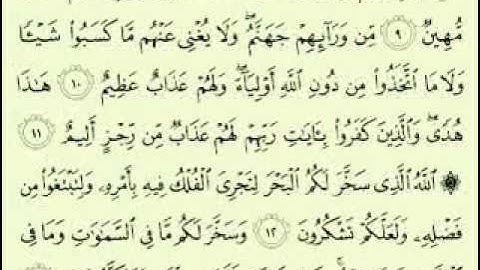 مُّهِينٌ ٩ مِّن وَرَآئِهِمْ جَهَنَّمُ ۖ وَلَا يُغْنِى عَنْهُم مَّا كَسَبُوا۟ شَيْـًٔا
وَلَا مَا ٱتَّخَذُوا۟ مِن دُونِ ٱللَّهِ أَوْلِيَآءَ ۖ وَلَهُمْ عَذَابٌ عَظِيمٌ ١٠ هَـٰذَا
هُدًى ۖ وَٱلَّذِينَ كَفَرُوا۟ بِـَٔايَـٰتِ رَبِّهِمْ لَهُمْ عَذَابٌ مِّن رِّجْزٍ أَلِيمٌ ١١
۞ ٱللَّهُ ٱلَّذِى سَخَّرَ لَكُمُ ٱلْبَحْرَ لِتَجْرِىَ ٱلْفُلْكُ فِيهِ بِأَمْرِهِۦ وَلِتَبْتَغُوا۟ مِن
فَضْلِهِۦ وَلَعَلَّكُمْ تَشْكُرُونَ ١٢ وَسَخَّرَ لَكُم مَّا فِى ٱلسَّمَـٰوَٰتِ وَمَا فِى